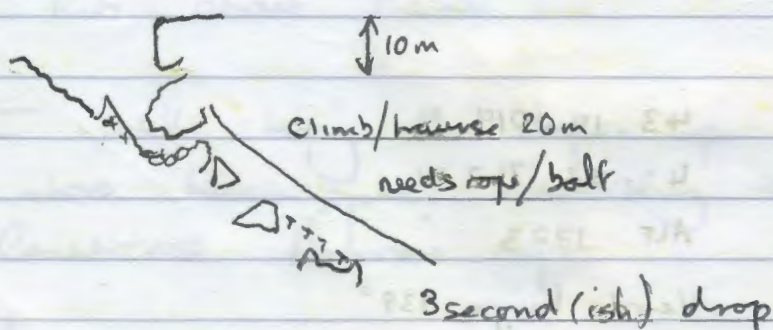 10m
Climb/traverse 20m
needs rope/bolt
3 second (ish) drop